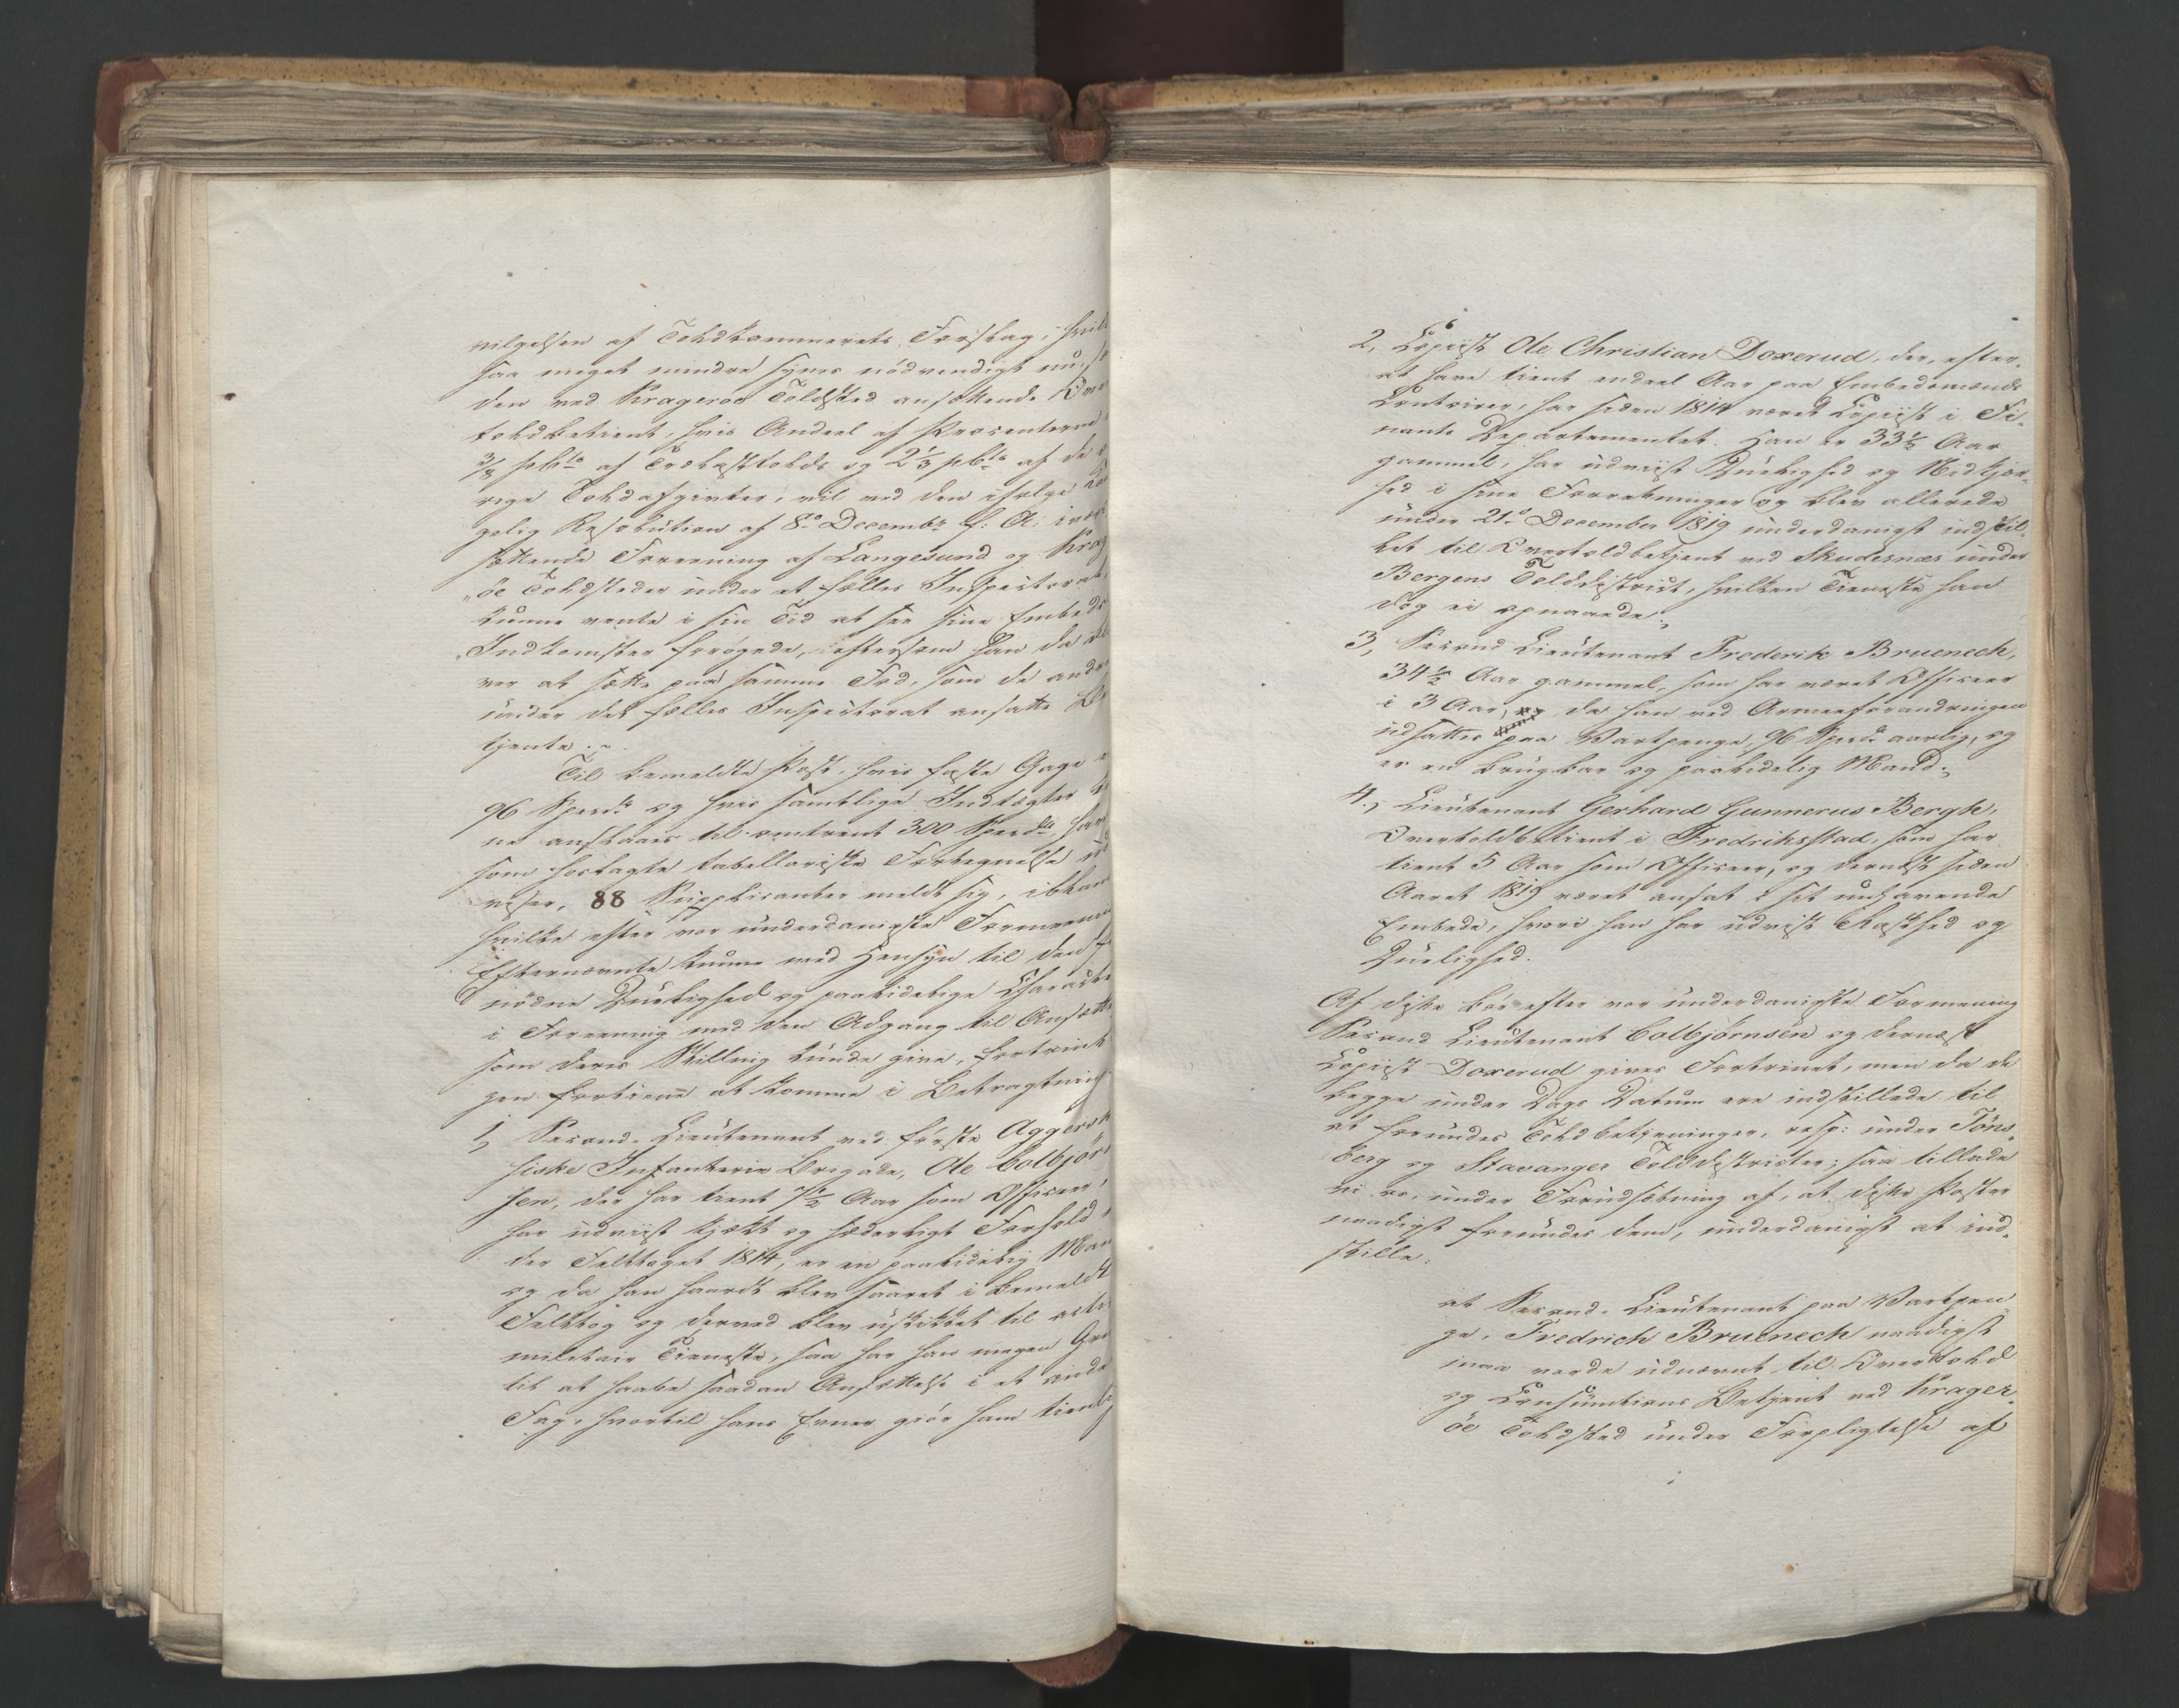 vilgelsen af Toldkammerets Forslag, hvilk
saa meget mindre synes nödvendigt nu, so
den ved Krageröe Toldsted ansættende Over
toldbetient, hvis Andeel af Procenterne
3/8 pCto af Trælasttolds og 2 1/3 pCto af de ö
vrige Toldafgivter, vil ved den ifølge Kon
gelig Resolution af 8de Decembr f: A: iværk
sættende Forening af Langesund og Krag
„öe Toldsteder under et fælles Inspectorat,
kunne vente i sin Tid at see sine Embeds
„Indkomster forögede, eftersom han da bli
ver at sætte paa samme Fod, som de andre
under det fælles Inspectorat ansatte Be
tjente.
Til bemeldte Post, hvis faste Gage er
96 Specd. og hvis samtlige Indtægter k
ne anslaaes til omtrent 300 Specdlr, har
som hoslagte tabellariske Fortegnelse ud
viser, 88 Supplicanter meldt sig, iblandt
hvilke efter vor underdanigste Formening
Efternævnte kunne med Hensyn til den for
nödne Duelighed og paalidelige Charakter
i Forening med den Adgang til Ansætte
som deres Stilling kunde give, fortrinli
gen fortiene at komme i Betragtning
1, Second-Lieutenant ved første Aggersh
siske Infanterie Brigade, Ole Colbjör
sen, der har tient 7 1/2 Aar som Officeer,
har udviist kjækt og hæderligt Forhold u
der Felttoget 1814, er en paalidelig Man
og da han haardt blev saaret i bemeldt
Felttog og derved blev uskikket til activ
militair Tieneste, saa har han megen Gru
til at haabe saadan Ansættelse i et andet
Fag, hvortil hans Evner giör ham tienlig
2, Copiist Ole Christian Doxerud, der, efter
at have tient endeel Aar paa Embedsmænds
Contoirer, har siden 1814 været Copiist i Fi„
nants Departementet. Han er 33 1/2 Aar
gammel, har udviist Duelighed og Nidkjær„
hed i sine Forretninger og blev allerede
under 21de December 1819 underdanigst indstil„
let til Overtoldbetjent ved Skudesnæs under
Bergens Tolddistrict, hvilken Tieneste han
dog ei opnaaede;
3, Second Lieutenant Frederik Bruenech,
34 1/2 Aar gammel, som har været Officeer
i 3 Aar, da han ved Armeeforandringen
udsattes paa Vartpenge, 96 Specd. aarlig, og
er en brugbar og paalidelig Mand;
4., Lieutenant Gerhard Gunnerus Bergh,
Overtoldbetient i Fredriksstad, som har
tient 5 Aar som Officeer, og dernæst siden
Aaret 1819 været ansat i sit nuhavende
Embede, hvori han har udvist Raskhed og
Duelighed.
Af disse bör efter vor underdanigste Formening
Second Lieutenant Colbjørnsen og dernæst
Copiist Doxerud gives Fortrinet, men da de
begge under Dags Datum ere indstillede til
at forundes Toldbetjeninger, resp: under Töns„
berg og Stavanger Tolddistricter; saa tillade
vi os, under Forudsætning af, at disse Poster
naadigst forundes dem, underdanigst at ind„
stille:
at Second-Lieutenant paa Vartpen
ge, Fredrich Bruenech naadigst
maa vorde udnævnt til Overtold
og Consumtions Betjent ved Krager
öe Toldsted under Forpligtelse af